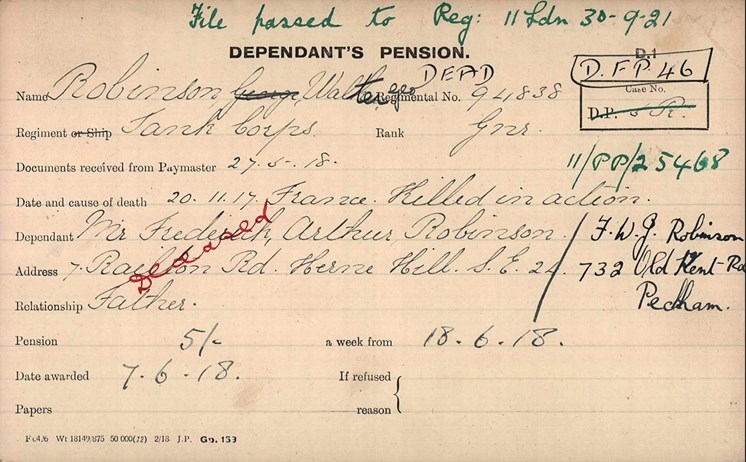 File passed to Reg: 11 Ldn 30-9-21
DEPENDANT'S PENSION.
D.1
D.F.P. 46
DEAD
Name Robinson, George, Walter Geo Regimental No. 94838
Case No.
D.P. 5 R.
Regiment or Ship Tank Corps. Rank Gnr.
Documents received from Paymaster 27.5.18.
11/PP/25468
Date and cause of death 20.11.17, France. Killed in action.
Dependant Mr Frederick, Arthur Robinson.
Deceased
F. W. G. Robinson
Address 7, Rd. Herne Hill. S.E. 24.
732 Old Kent Rd
Peckham.
Relationship Father.
Pension 5/- a week from 18.6.18.
Date awarded 7.6.18. If refused
Papers reason
Wt 18149/875 50 000(12) 2/18 J.P. Gp. 153